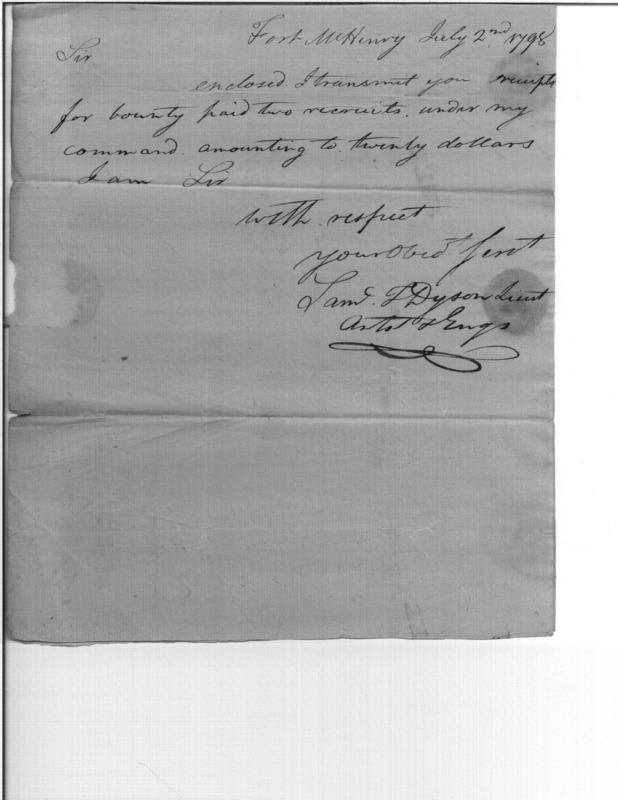 Fort McHenry July 2nd 1798
Sir
enclosed I transmit you receipts
for bounty paid two recruits. under my
command amounting to twenty dollars
I am Sir
with respect
your Obedt Servt
Saml. T Dyson Lieut
Artst & Engs